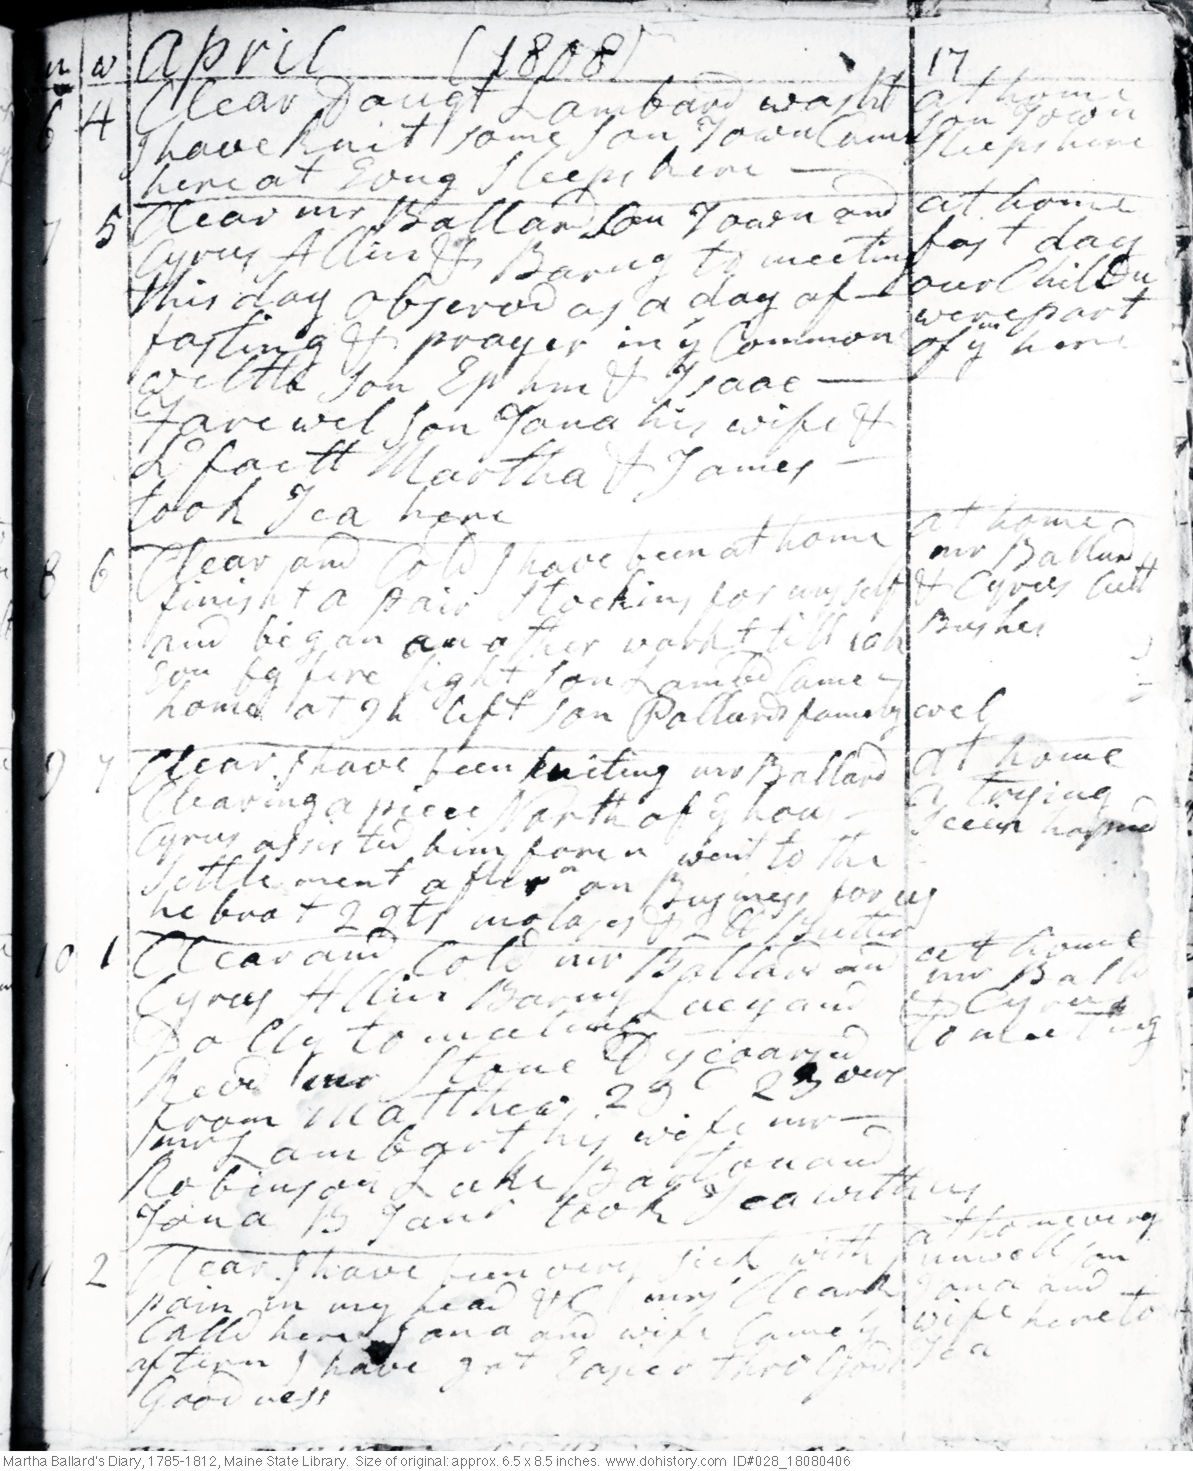 m w April (1808) 17
6 4 Clear Daugt Lambard washt
I have knit some Son Town Came
here at Evng Sleeps here
at home
Son Town
Sleeps here
7 5 Clear mr Ballard Son Town and
Cyrus Allin & Barny to meeting
this day observd as a day of
fasting & prayer in ye Common
welth Son Ephm & Isaac
Farewel Son Jona his wife &
Lafaitt Martha & James
took Tea here
at home
fast day
our Childn
were part
of ym here
8 6 Clear and Cold I have been at home
finisht a pair Stockins for my self
and began another workt till 10h
Evn by fire light Son Lambd Came
home at 9h left Son Pollards family wel
at home
mr Ballard
& Cyrus Cutt
Bushes
9 7 Clear. I have been kniting mr Ballard
Clearing a piece North of ye hous
Cyrus assisted him foren went to the
Settlement aftern on Business for us
he brot 2 qts molases & 2 lb Butter
at home
a trying
Scein hapned
10 1 Clear and Cold mr Ballard and
Cyrus Allin Barny Lucy and
Dolly to meeting
Revd mr Stone Dyscoarsd
from Matthew 23 C 23 vers
mr Lambart his wife mr
Robinson Luke Barton and
Jona B Jun took Tea with us
at home
mr Balld
& Cyrus
to meeting
11 2 Clear. I have been very sick with
pain in my head &C mrs Cleark
Calld here Jona and wife Came
aftern I have got Easier thro Gods
Goodness
at home very
unwell Son
Jona and
wife here to
Tea
Martha Ballard's Diary, 1785-1812, Maine State Library. Size of original: approx. 6.5 x 8.5 inches. www.dohistory.com ID#028_18080406